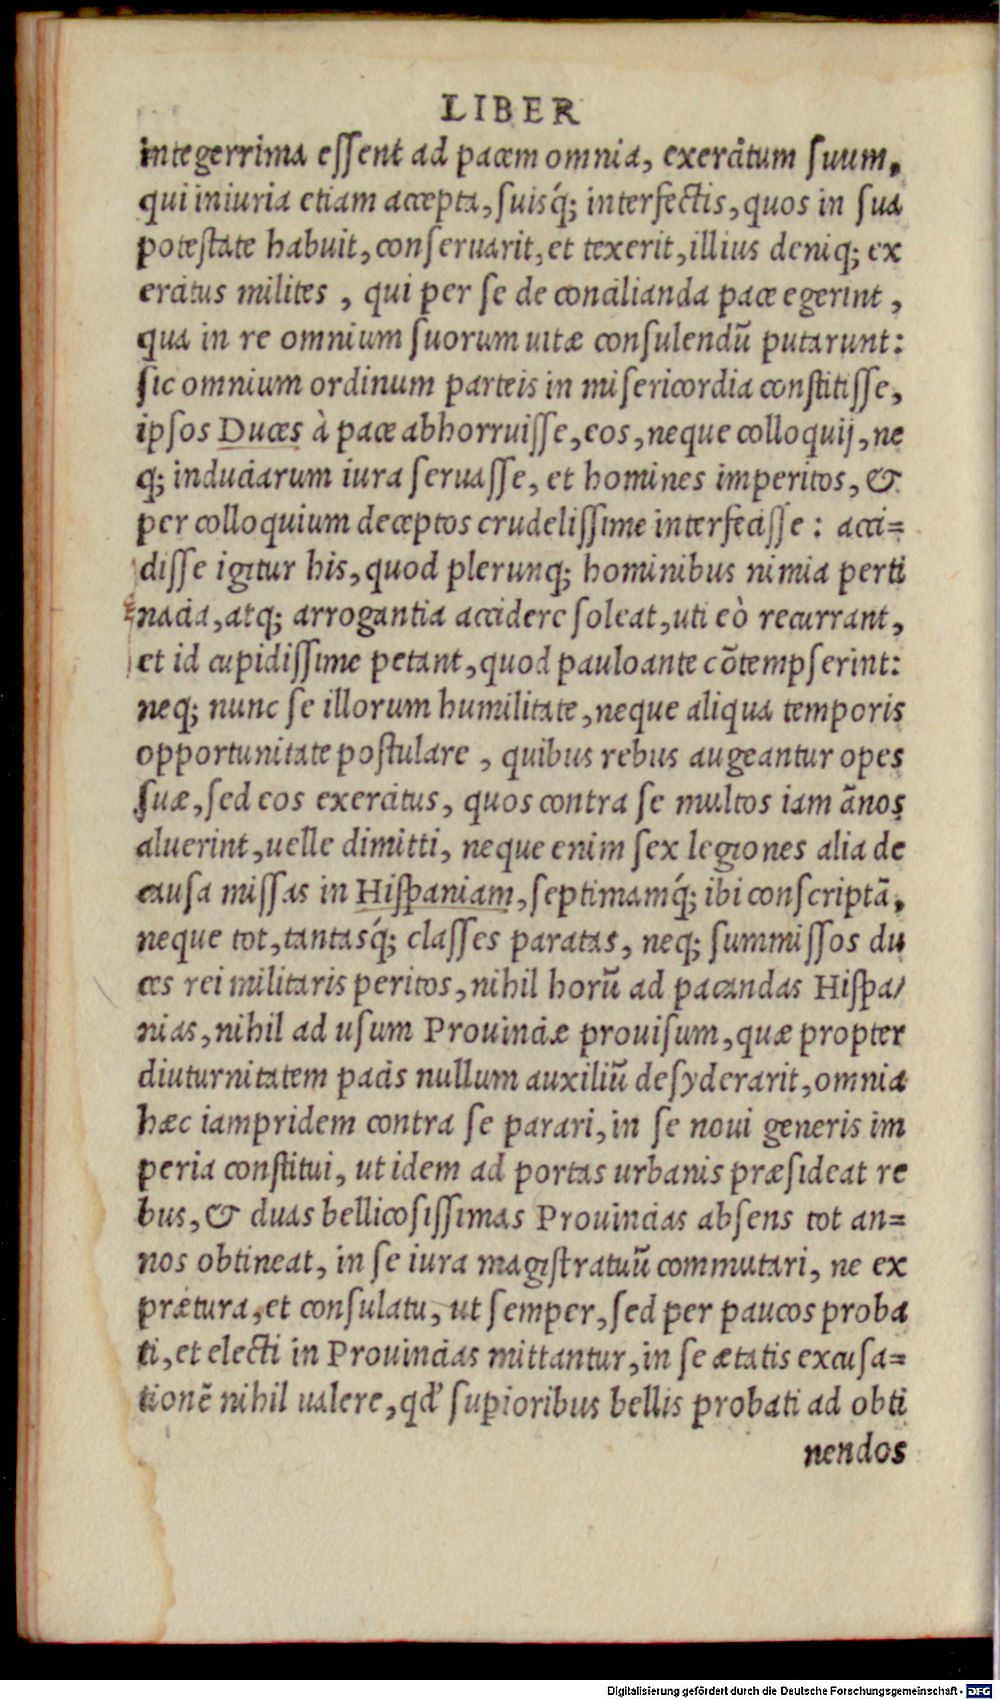 LIBER
integerrima eſſent ad pacem omnia, exercitum ſuum,
qui iniuria etiam accepta, ſuisq́; interfectis, quos in ſua
poteſtate habuit, conſeruarit, et texerit, illius deniq; ex
ercitus milites, qui per ſe de concilianda pace egerint,
qua in re omnium ſuorum uitæ conſulendū putarunt:
ſic omnium ordinum parteis in miſericordia conſtitiſſe,
ipſos Duces à pace abhorruiſſe, eos, neque colloquij, ne
q; induciarum iura ſeruaſſe, et homines imperitos, &
per colloquium deceptos crudeliſſime interfeciſſe: acci=
diſſe igitur his, quod plerunq; hominibus nimia perti
nacia, atq; arrogantia accidere ſoleat, uti eò recurrant,
et id cupidiſſime petant, quod pauloante cōtempſerint:
neq; nunc ſe illorum humilitate, neque aliqua temporis
opportunitate poſtulare, quibus rebus augeantur opes
ſuæ, ſed eos exercitus, quos contra ſe multos iam ānos
aluerint, uelle dimitti, neque enim ſex legiones alia de
cauſa miſſas in Hiſpaniam, ſeptimamq́; ibi conſcriptā,
neque tot, tantasq́; claſſes paratas, neq; ſummiſſos du
ces rei militaris peritos, nihil horū ad pacandas Hiſpa/
nias, nihil ad uſum Prouinciæ prouiſum, quæ propter
diuturnitatem pacis nullum auxiliū deſyderarit, omnia
hæc iampridem contra ſe parari, in ſe noui generis im
peria conſtitui, ut idem ad portas urbanis præſideat re
bus, & duas bellicoſiſſimas Prouincias abſens tot an=
nos obtineat, in ſe iura magiſtratuū commutari, ne ex
prætura, et conſulatu, ut ſemper, ſed per paucos proba
ti, et electi in Prouincias mittantur, in ſe ætatis excuſa=
tionē nihil ualere, qd' ſuꝑioribus bellis probati ad obti
nendos
Digitalisierung gefördert durch die Deutsche Forschungsgemeinschaft - DFG